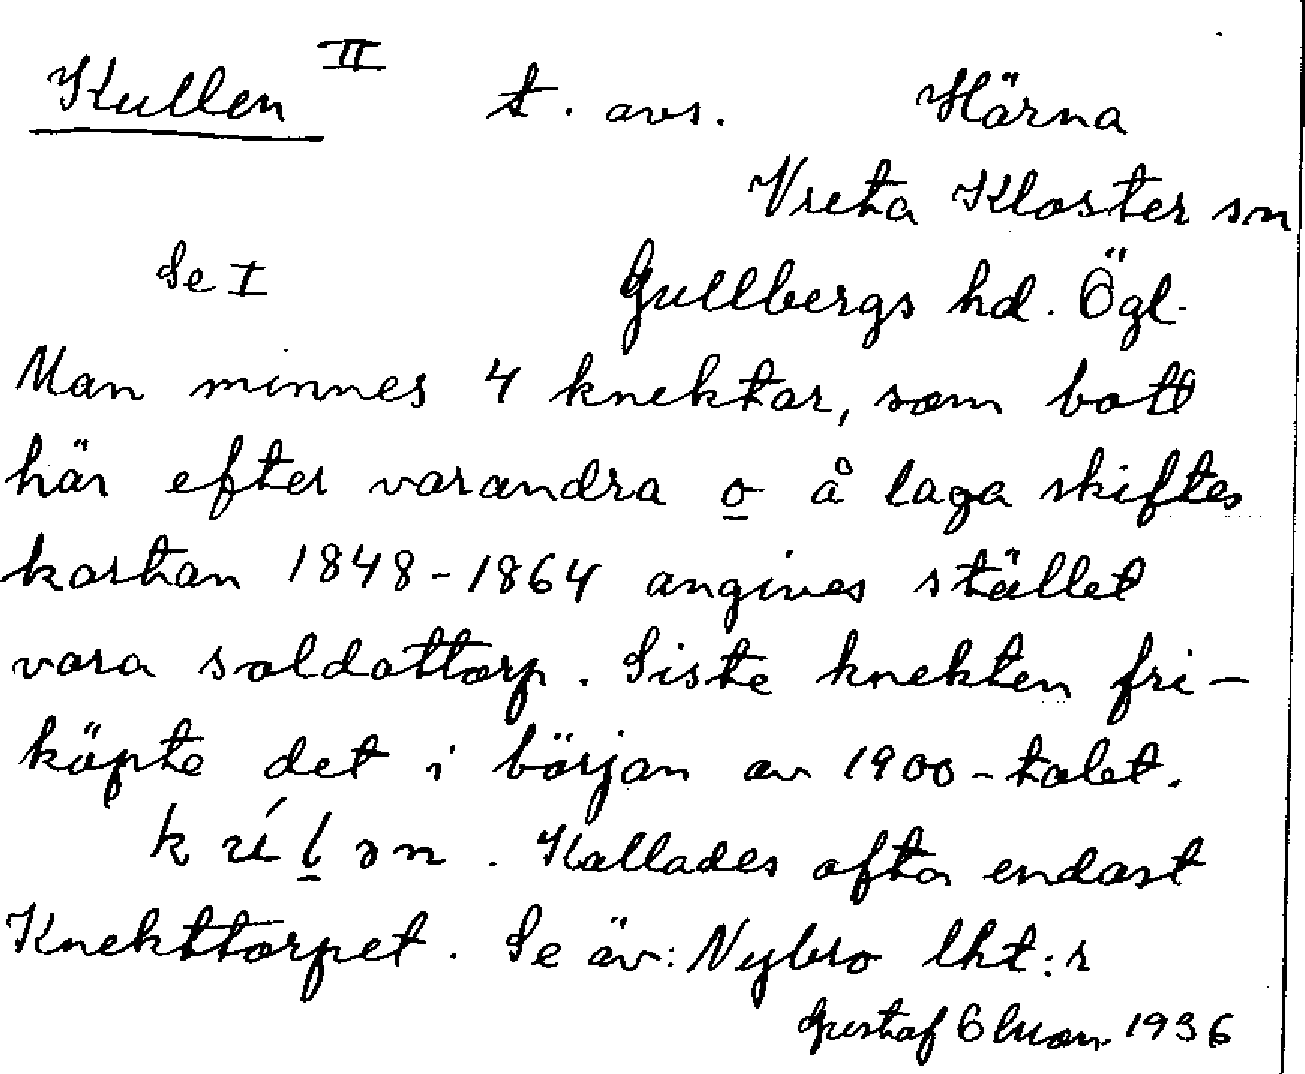 Kullen II t. avs. Härna
Vreta Kloster sn
Se I Gullbergs hd. Ögl.
Man minnes 4 knektar, som bott
här efter varandra o å laga skiftes
kartan 1848-1864 angives stället
vara soldattorp. Siste knekten fri-
köpte det i början av 1900-talet.
kúlən. Kallades ofta endast
Knekttorpet. Se äv: Nybro lht:r
Gustaf 1936